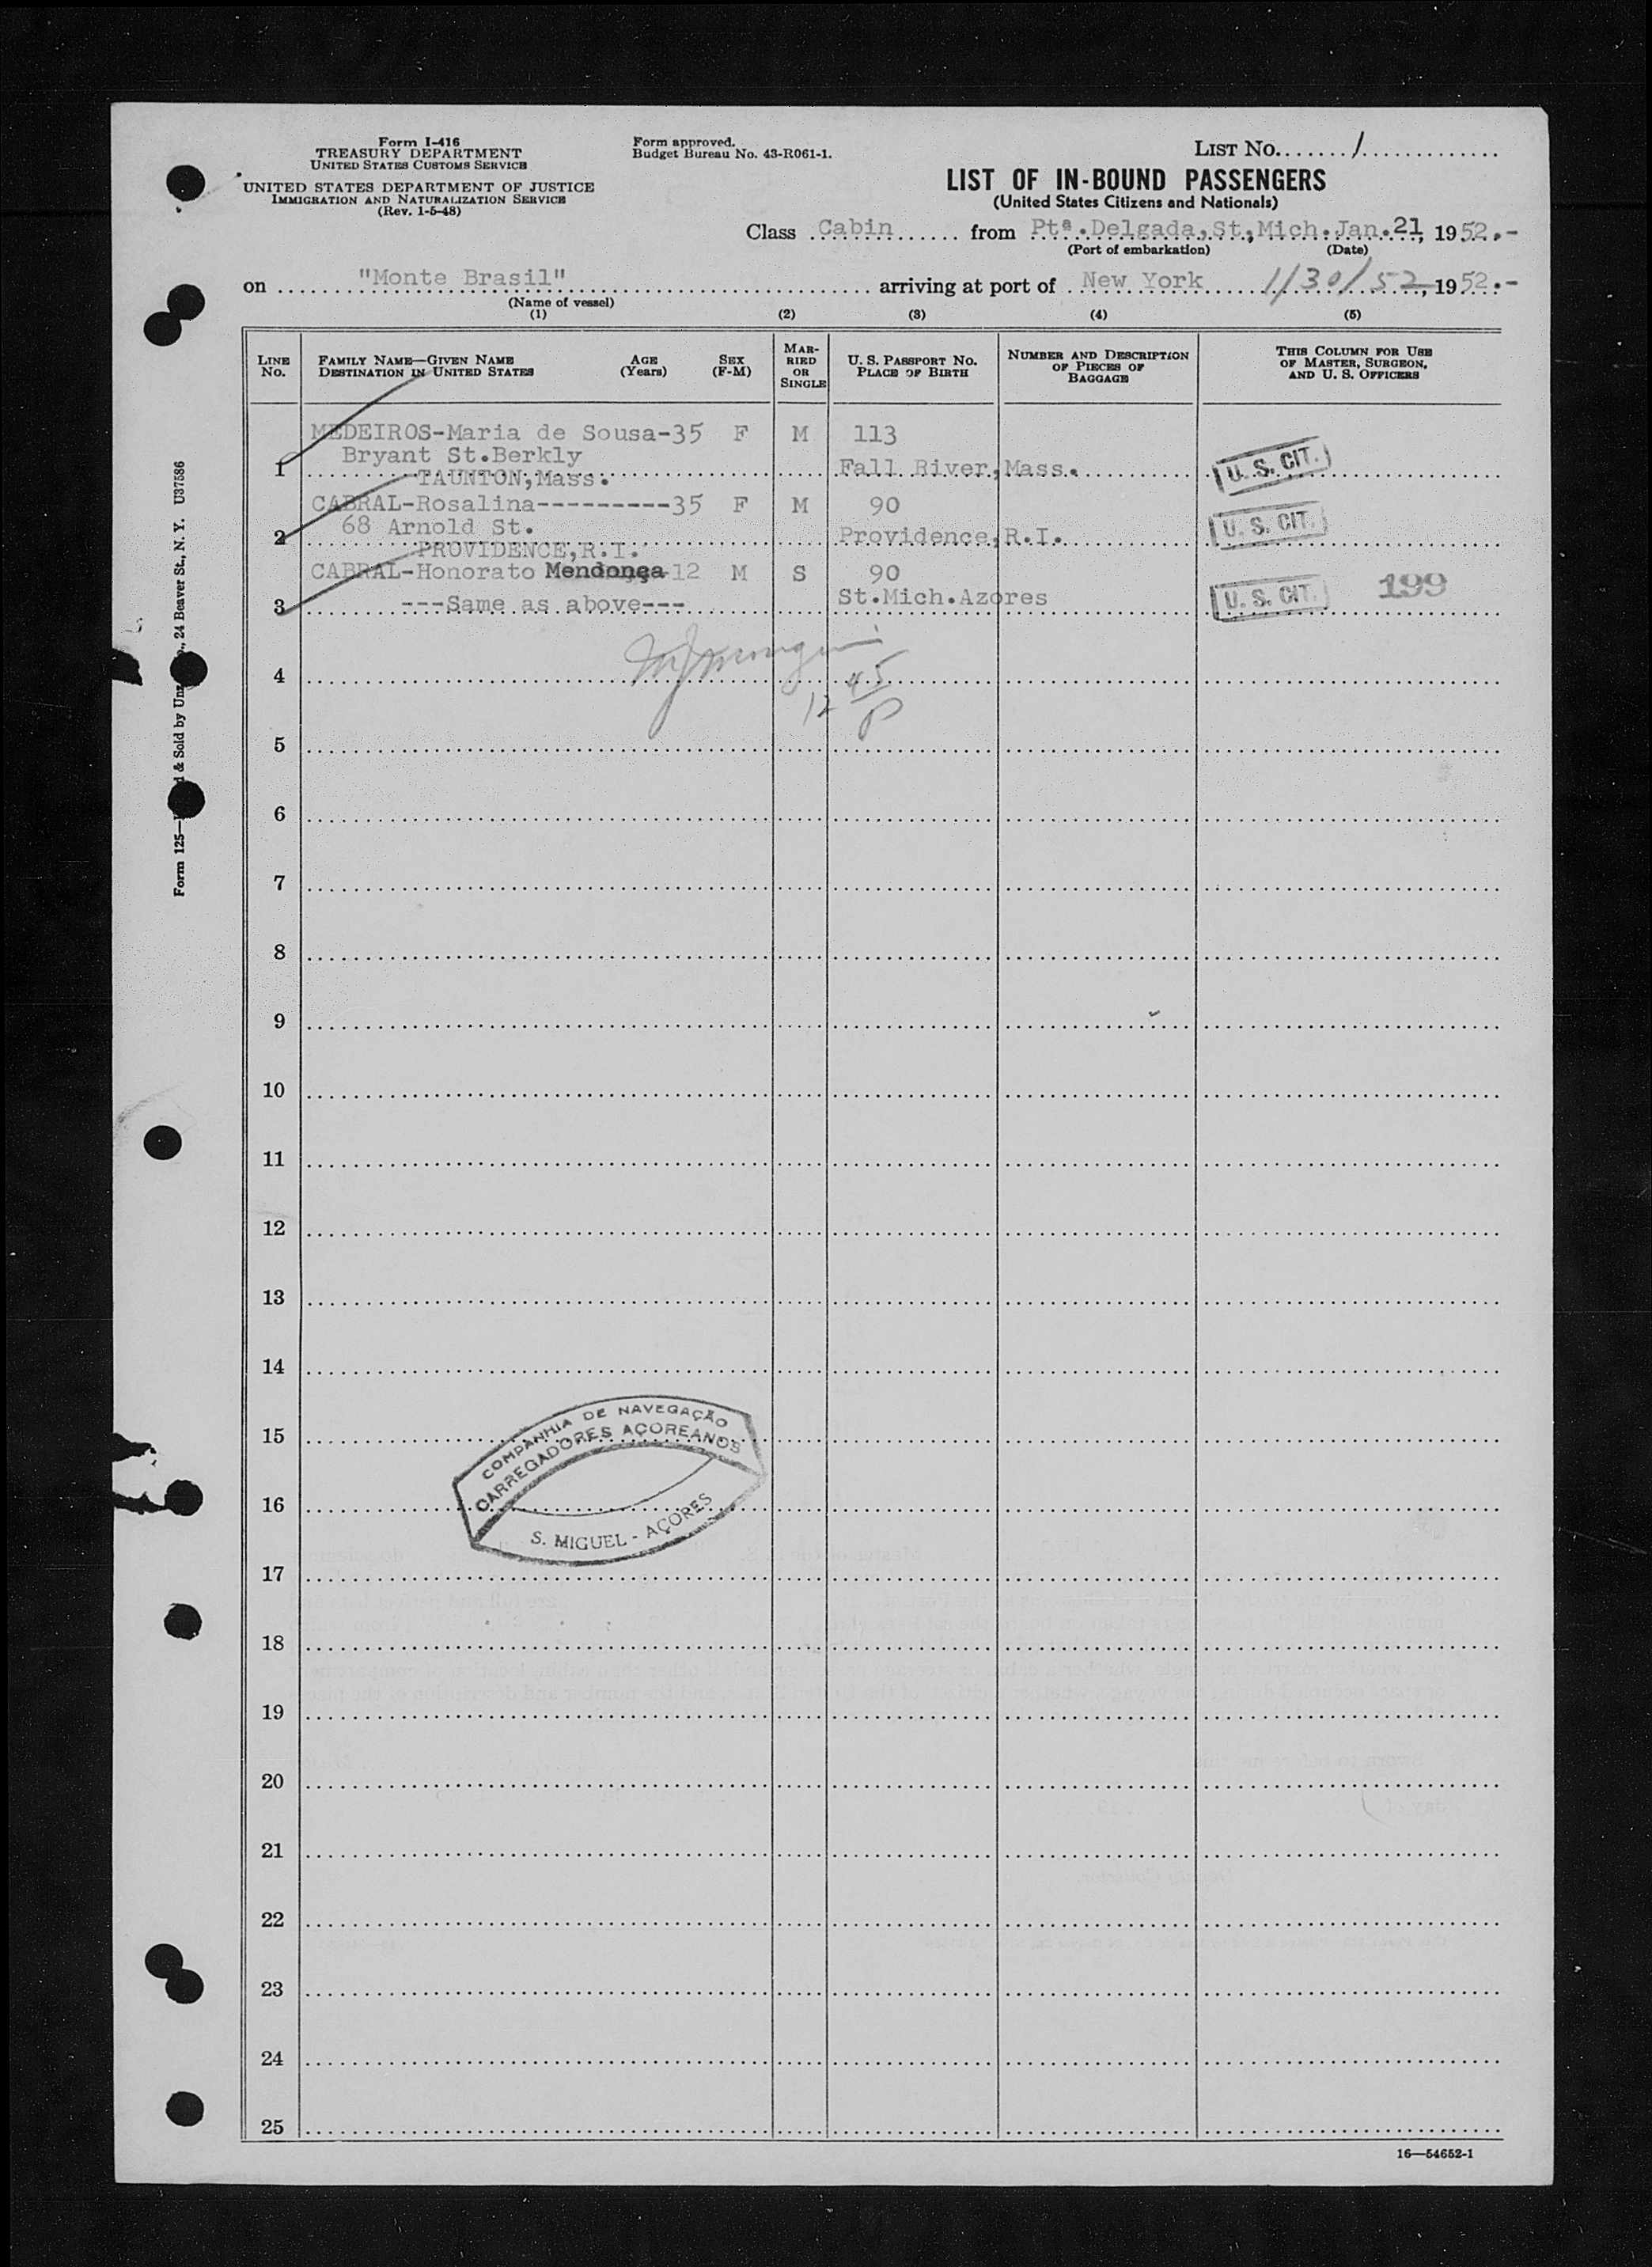 Form I-416
TREASURY DEPARTMENT
UNITED STATES CUSTOMS SERVICE
UNITED STATES DEPARTMENT OF JUSTICE
IMMIGRATION AND NATURALIZATION SERVICE
(Rev. 1-5-48)
Form approved.
Budget Bureau No. 43-R061-1.
LIST No. 1
LIST OF IN-BOUND PASSENGERS
(United States Citizens and Nationals)
Class Cabin from Ptª.Delgada,St.Mich.Jan.21, 1952.-
(Port of embarkation) (Date)
on "Monte Brasil" arriving at port of New York 1/30/52, 1952.-
(Name of vessel)
(1) (2) (3) (4) (5)
LINE No. FAMILY NAME—GIVEN NAME DESTINATION IN UNITED STATES AGE (Years) SEX (F-M) MARRIED OR SINGLE U. S. PASSPORT NO. PLACE OF BIRTH NUMBER AND DESCRIPTION OF PIECES OF BAGGAGE THIS COLUMN FOR USE OF MASTER, SURGEON, AND U. S. OFFICERS
MEDEIROS-Maria de Sousa-35 F M 113
Bryant St.Berkly
1 TAUNTON,Mass. Fall River,Mass. U. S. CIT.
CABRAL-Rosalina---------35 F M 90
68 Arnold St.
2 PROVIDENCE,R.I. Providence,R.I. U. S. CIT.
CABRAL-Honorato Mendonça-12 M S 90
3 ---Same as above--- St.Mich.Azores U. S. CIT. 199
4
12 45 P
5
6
7
8
9
10
11
12
13
14
15
16
17
18
19
20
21
22
23
24
25
COMPANHIA DE NAVEGAÇÃO
CARREGADORES AÇOREANOS
S. MIGUEL - AÇORES
16—54652-1
Form 125— & Sold by Unz ., 24 Beaver St., N. Y. U37586